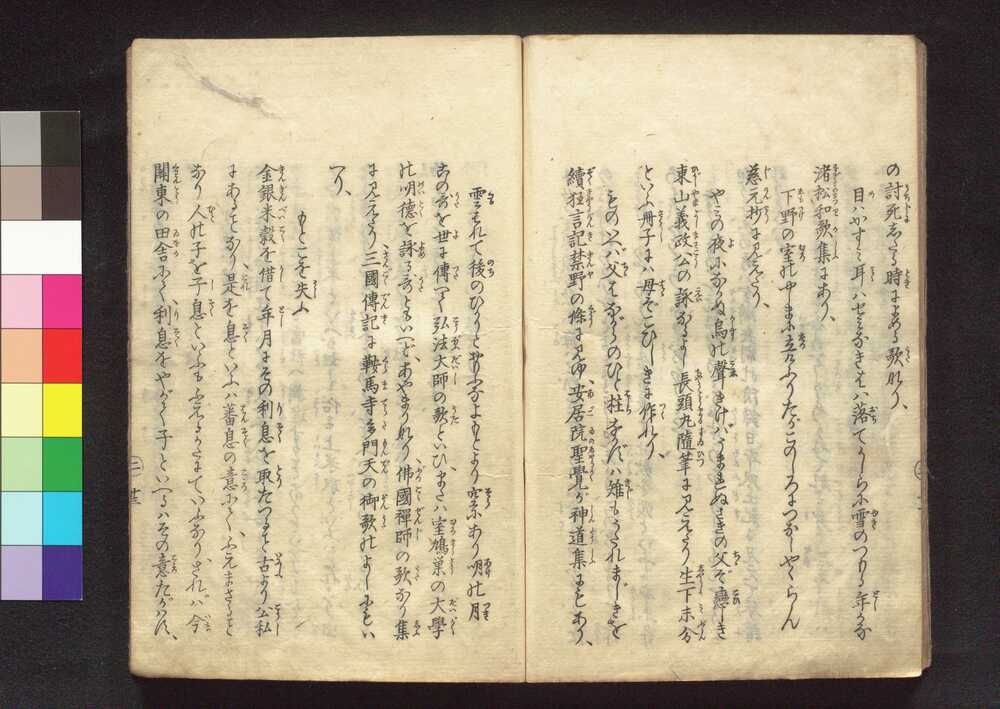 の討死したる時によめる歌なり、
目ハかすミ耳ハせミなきはハ落てかしらに雪のつもる年かな
渚松和歌集にあり、
下野の室のやしまに立けふりたがこのしろにつなしやくらん
慈元抄に見えたり、
やミの夜になかぬ烏の聲きけバうまれぬさきの父ぞ戀しき
東山義政公の詠なるよし長頭丸隨筆に見えたり生下未分
といふ册子にハ母ぞこひしきに作れり、
ものいへバ父はながらのひと柱なかずハ雉もうたれまじきを
續狂言記禁野の條に見ゆ、安居院聖覺が神道集にもあり、
雲はれて後のひかりとおもふなよもとより空にあり明の月
この歌を世に傳へて弘法大師の歌といひ、または室鳩巣の大學
の明德を詠る歌ともいへどあやまりなり佛國禪師の歌なり集
に見えたり三國傳記に鞍馬寺多門天の御歌のよしにもい
へり、
もとこを失ふ
金銀米穀を借て年月にその利息を取たつること古より公私
にあることなり、是を息といふハ蕃息の意にて、ふえまさること
なり人の子を子息といふもふゆるかたにていふなり、されバ今
關東の田舎にて利息をやがて子といへるハその意たがはず、